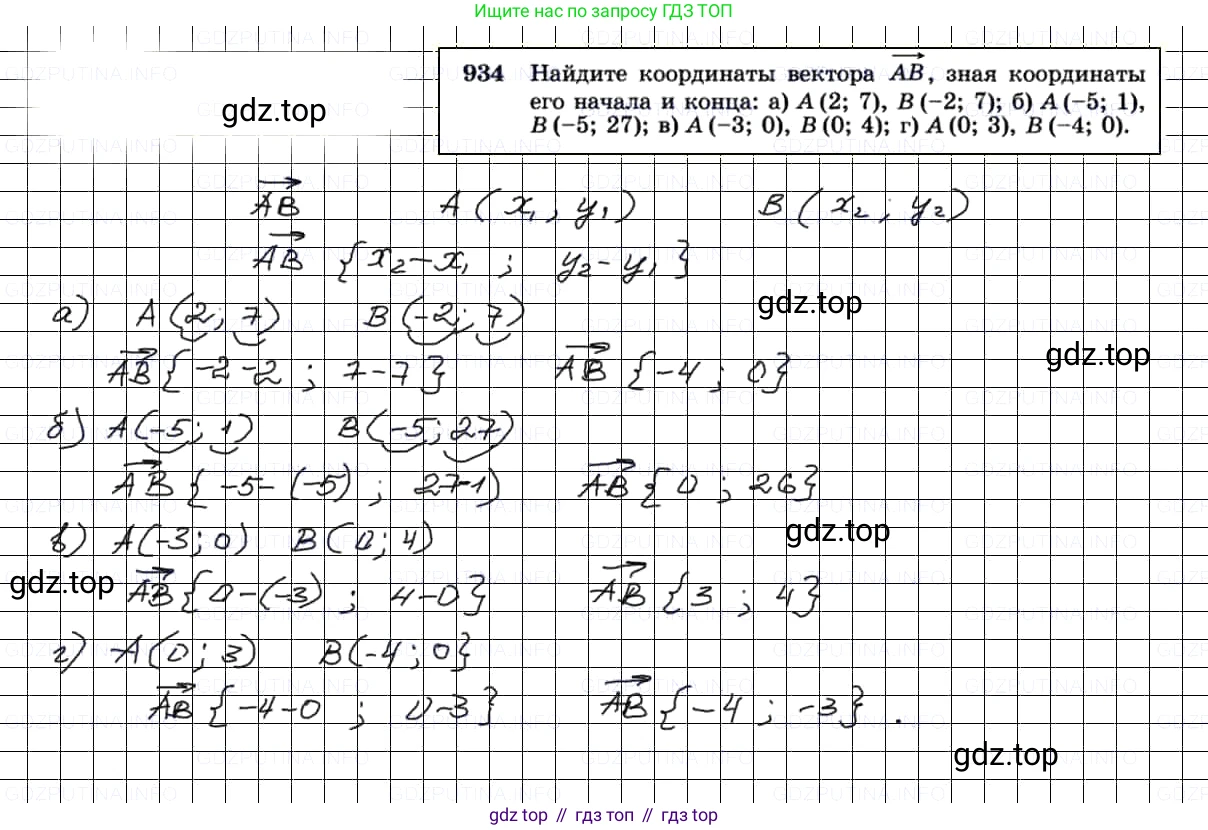 Ищите нас по запросу ГДЗ ТОП
934 Найдите координаты вектора AB, зная координаты
его начала и конца: а) A (2; 7), B (−2; 7); б) A (−5; 1),
B (−5; 27); в) A (−3; 0), B (0; 4); г) A (0; 3), B (−4; 0).
gdz.top
AB A (x₁ ; y₁) B (x₂ ; y₂)
AB {x₂−x₁ ; y₂−y₁}
gdz.top
а) A (2; 7) B (−2; 7)
gdz.top
AB {−2−2 ; 7−7} AB {−4 ; 0}
б) A (−5; 1) B (−5; 27)
AB {−5−(−5) ; 27−1) AB {0 ; 26}
gdz.top
в) A (−3; 0) B (0; 4)
gdz.top
AB {0−(−3) ; 4−0} AB {3 ; 4}
г) A (0; 3) B (−4; 0}
AB {−4−0 ; 0−3} AB {−4 ; −3} .
gdz.top
GDZPUTINA.INFO
gdz top // гдз топ // gdz top